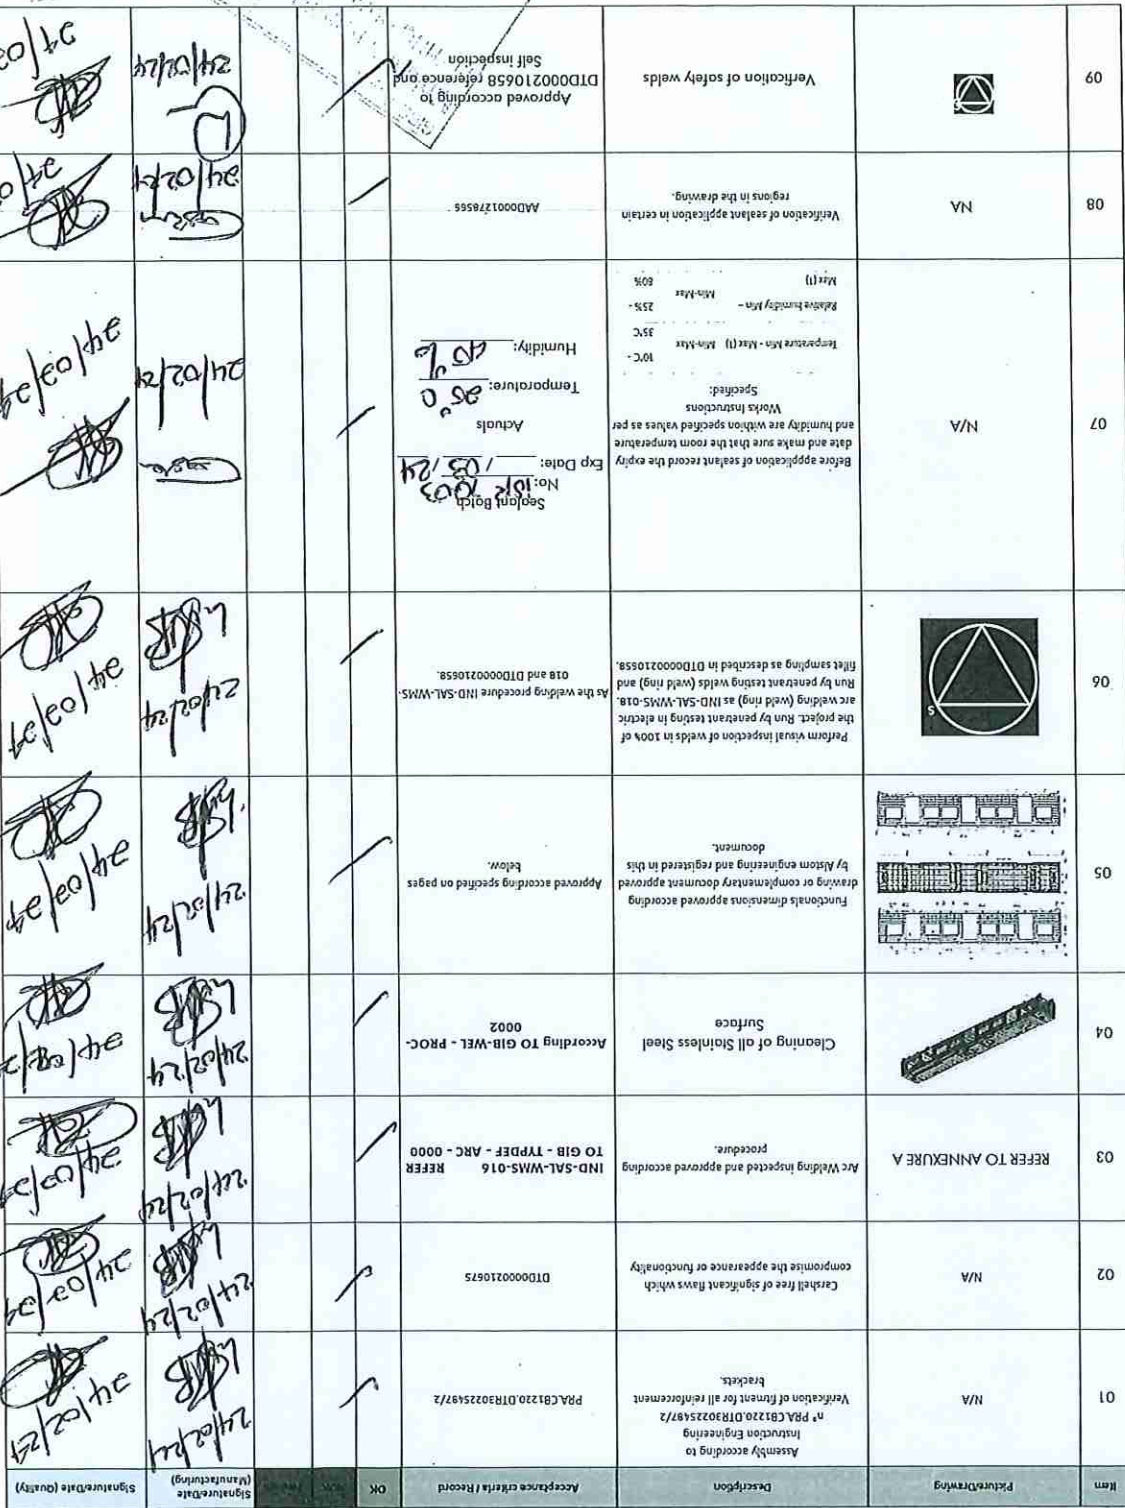 Item Picture/Drawing Description Acceptance criteria / Record OK Signature/Date (Manufacturing) Signature/Date (Quality)
01
N/A
Assembly according to
Instruction Engineering
n° PRA.CB1220.DTR3022S497/2
Verification of fitment for all reinforcement
brackets.
24/02/24
24/02/24
02
N/A
Carshell free of significant flaws which
compromise the appearance or functionality
DTD0000210675
24/02/24
24/03/24
03
REFER TO ANNEXURE A
Arc Welding inspected and approved according
procedure.
IND-SAL-WMS-016 REFER
TO GIB - TYPDEF - ARC - 0000
24/02/24
04
Cleaning of all Stainless Steel
Surface
According TO GIB-WEL - PROC-
0002
24/02/24
05
Functionals dimensions approved according
drawing or complementary document approved
by Alstom engineering and registered in this
document.
Approved according specified on pages
below.
24/02/24
24/03/24
06
S
Perform visual inspection of welds in 100% of
the project. Run by penetrant testing in electric
arc welding (weld ring) as IND-SAL-WMS-018.
Run by penetrant testing welds (weld ring) and
fillet sampling as described in DTD0000210658.
As the welding procedure IND-SAL-WMS-
018 and DTD0000210658.
24/02/24
24/03/24
07
N/A
Before appplication of sealant record the expiry
date and make sure that the room temperature
and humidity are withion specified values as per
Works Instructions
Specified:
Temperature Min - Max (1) Min-Max 10°C - 35°C
Relative humidity Min - Max (1) Min-Max 25% - 80%
Sealant Batch
No:
Exp Date: / 03 / 24
Actuals
Temperature: 25°C
Humidity: 40%
24/02/24
24/03/24
08
NA
Verification of sealant application in certain
regions in the drawing.
AAD0001278565
24/02/24
09
S
Verification of safety welds
Approved according to
DTD0000210658 reference and
Self inspection
24/02/24